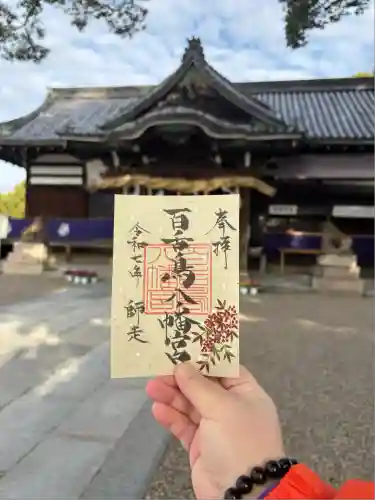 奉拝
百舌鳥八幡宮
令和七年
師走